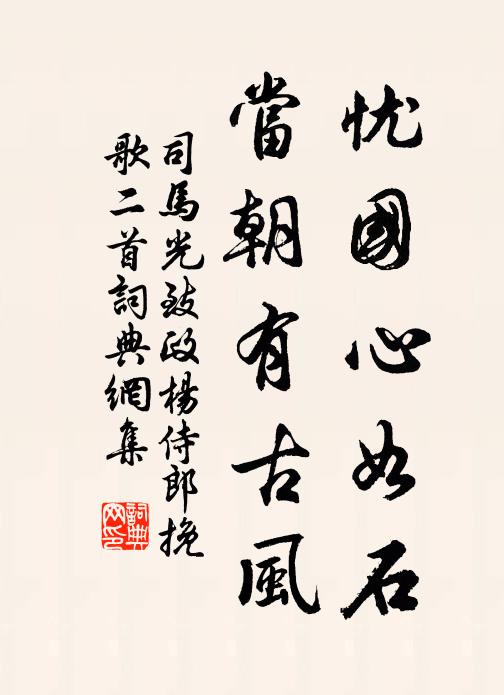 忧國心如石
當朝有古風
司馬光致政楊侍郎挽
歌二首詞典網集
詞典网印